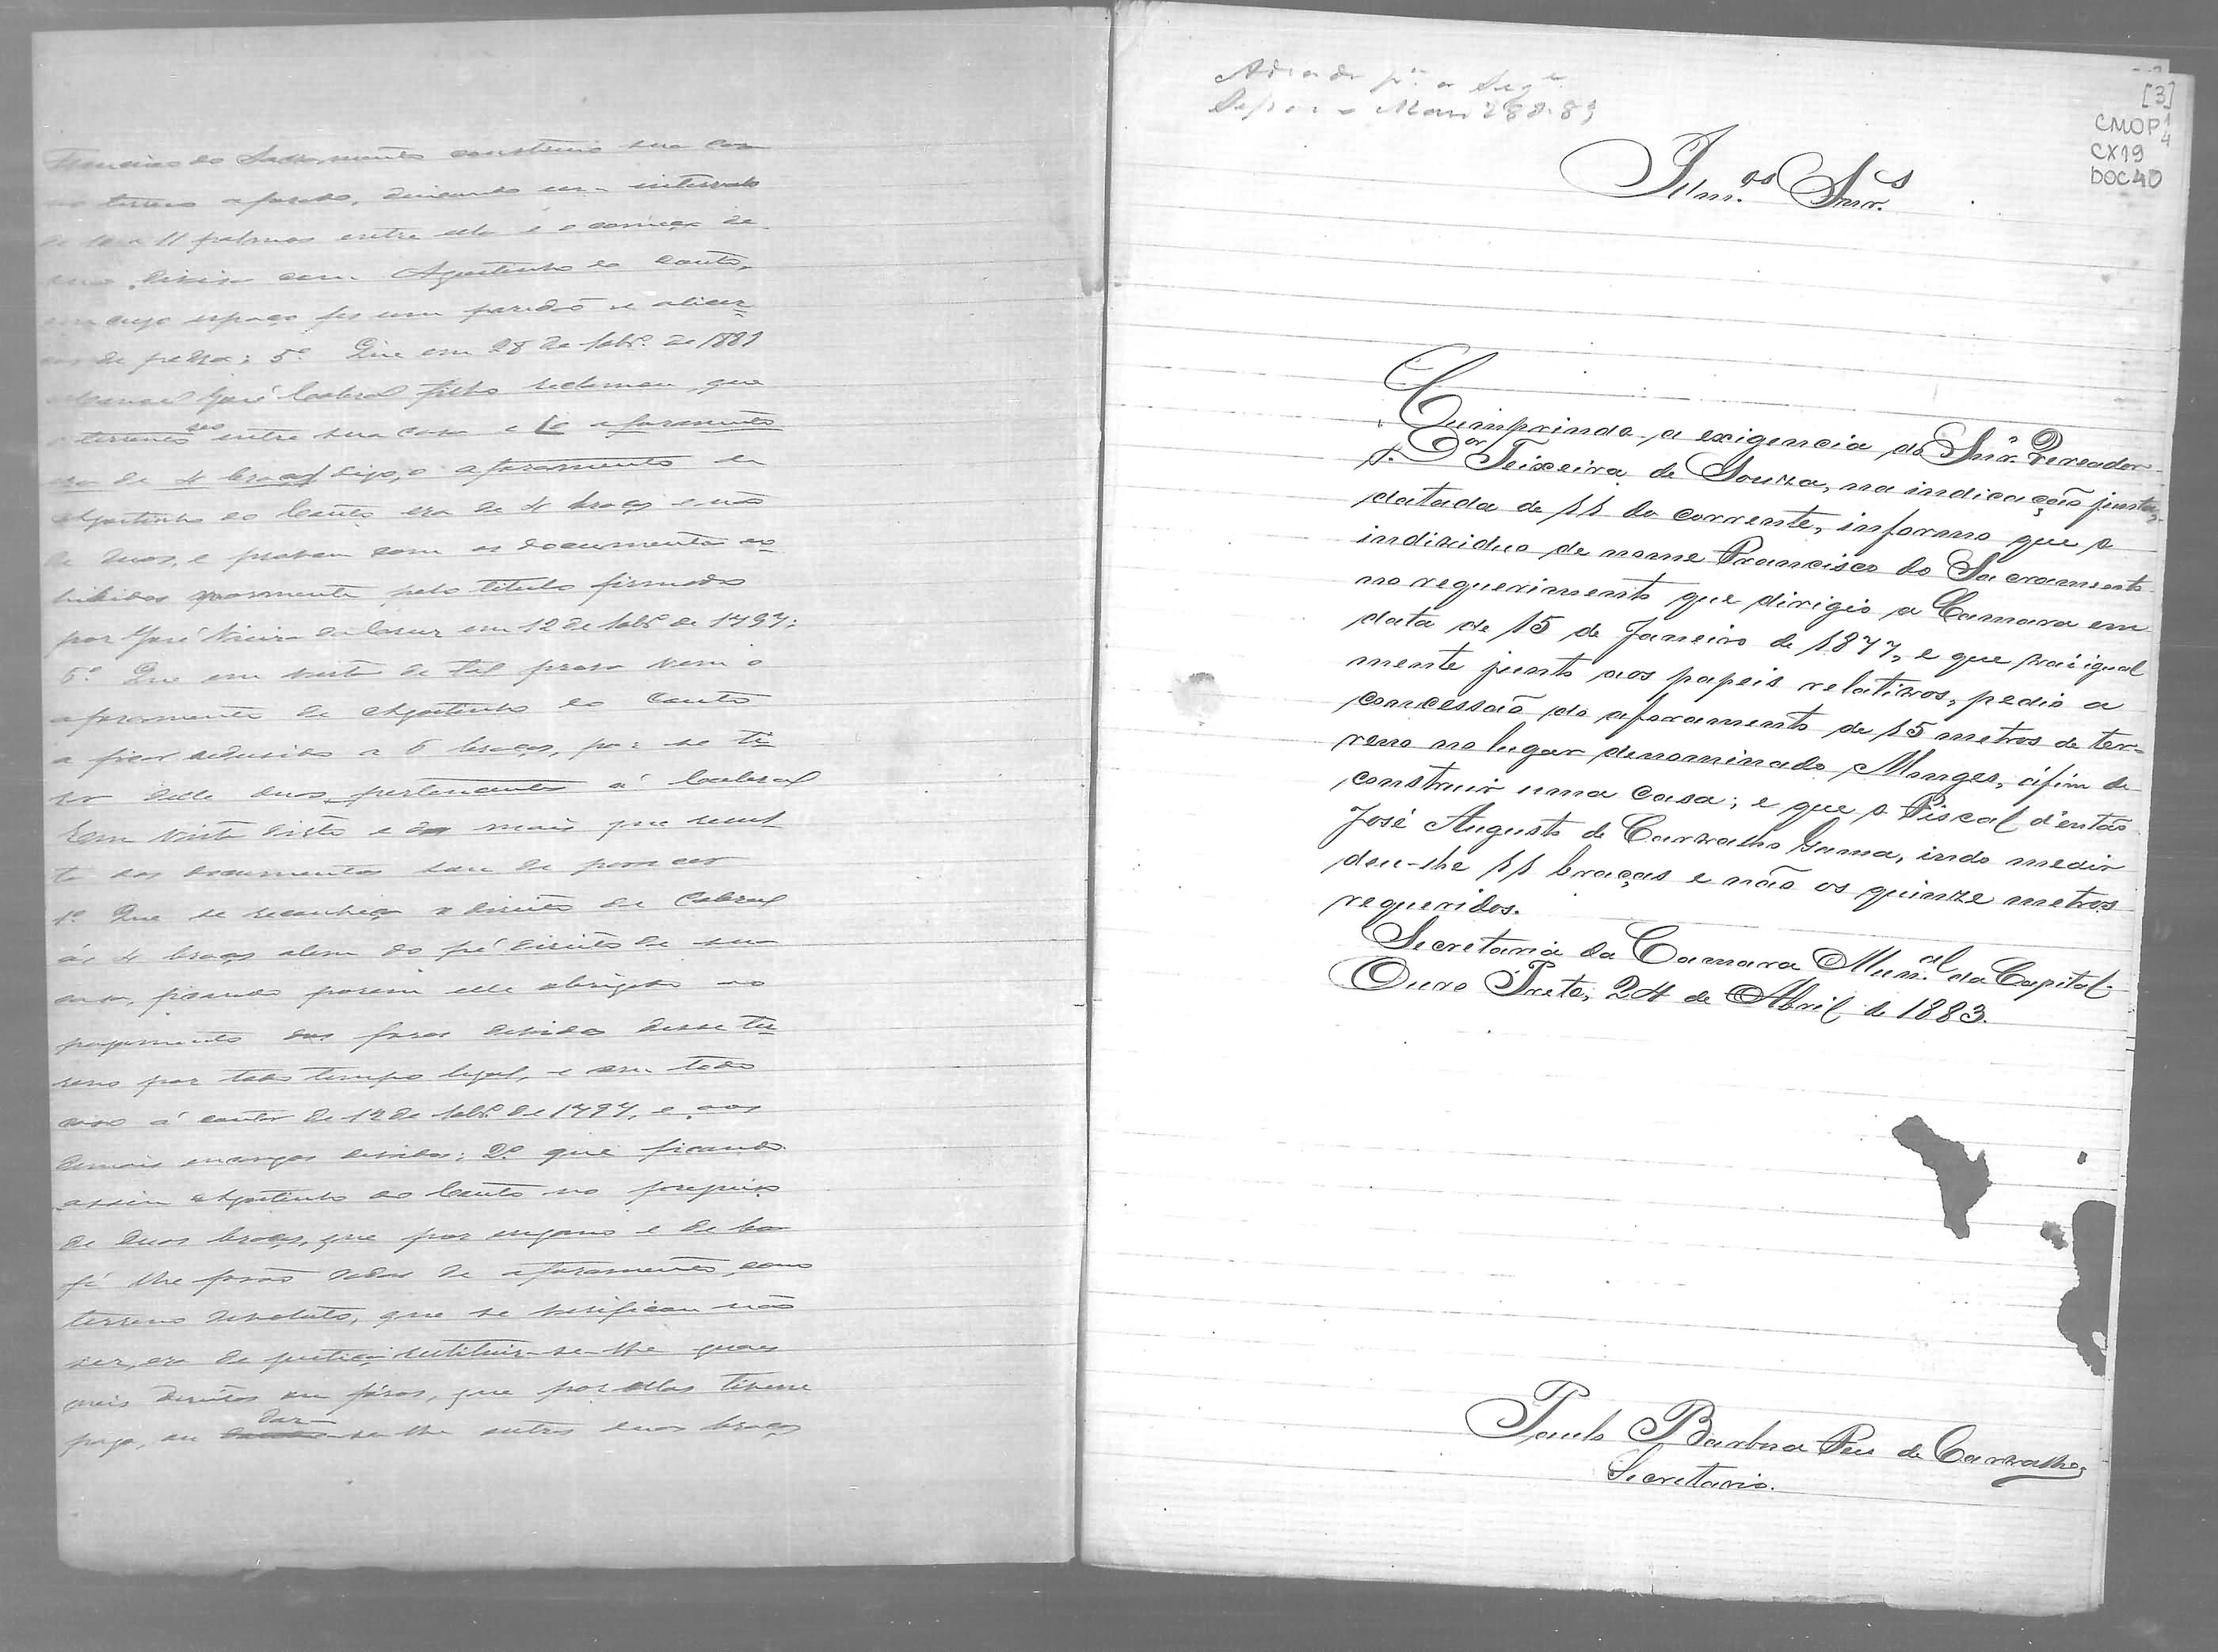 Francisco do Sacramento construio sua casa
no terreno aforado, deixando um intervalo
de 10 a 11 palmos entre ella e o começo de
sua divisa com Agostinho do Couto,
em cujo espaço fes um paredão e alicer=
ces de pedra; 5º Que em 28 de 7bro. de 1881
Manoel José Cabral filho reclamou, que
o terreno entre sua casa e o aforamento
era de 4 braças digo, o aforamento de
Agostinho do Couto era de 4 braças e não
de duas, e provou com os documentos ex=
hibidos mormente pelo titulo firmado
por José Vieira em 12 de 7bro. de 1797:
6º Que em vista de tal prova vem o
aforamento de Agostinho do Couto
a ficar redusido a 6 braças, por se ti=
rar delle duas pertencentes á Cabral
Em vista disto e do mais que resul=
ta dos documentos sou de parecer
1º Que se reconheça o direito de Cabral
ás 4 braças alem do pé direito de sua
casa, ficando porem elle obrigado ao
pagamento dos foros devidos desse ter=
reno por todo tempo legal, e em todo
caso á contar de 12 de 7bro. de 1797, e aos
demais encargos devidos; 2º que ficando
assim Agostinho do Couto no prejuizo
de duas braças, que por engano e de boa
fé lhe forão dadas de aforamento, como
terreno devoluto, que se verificou não
ser, era de justiça restituir-se-lhe quaes
quer direitos ou fóros, que por ellas tivesse
pago, ou dar-se-lhe outras duas braças
[3]
CMOP 1/4
CX19
DOC40
Illm.os Snr.s
Cumprindo a exigencia do Snr. Vereador
Dor Teixeira de Souza, na indicação junta,
datada de 11 do corrente, informo que o
individuo de nome Francisco do Sacramento
no requerimento que dirigio a Camara em
data de 15 de Janeiro de 1877, e que vai igual
mente junto aos papeis relativos, pedio a
concessão do aforamento de 15 metros de ter=
reno no lugar denominado Monges, áfim de
construir uma casa; e que o Fiscal d'então
José Augusto de Carvalho Gama, indo medir
deu-lhe 11 braças e não os quinze metros
requeridos.
Secretaria da Camara Mun.al da Capital.
Ouro Preto, 24 de Abril de 1883.
Paulo Barbosa Peu de Carvalho,
Secretario.